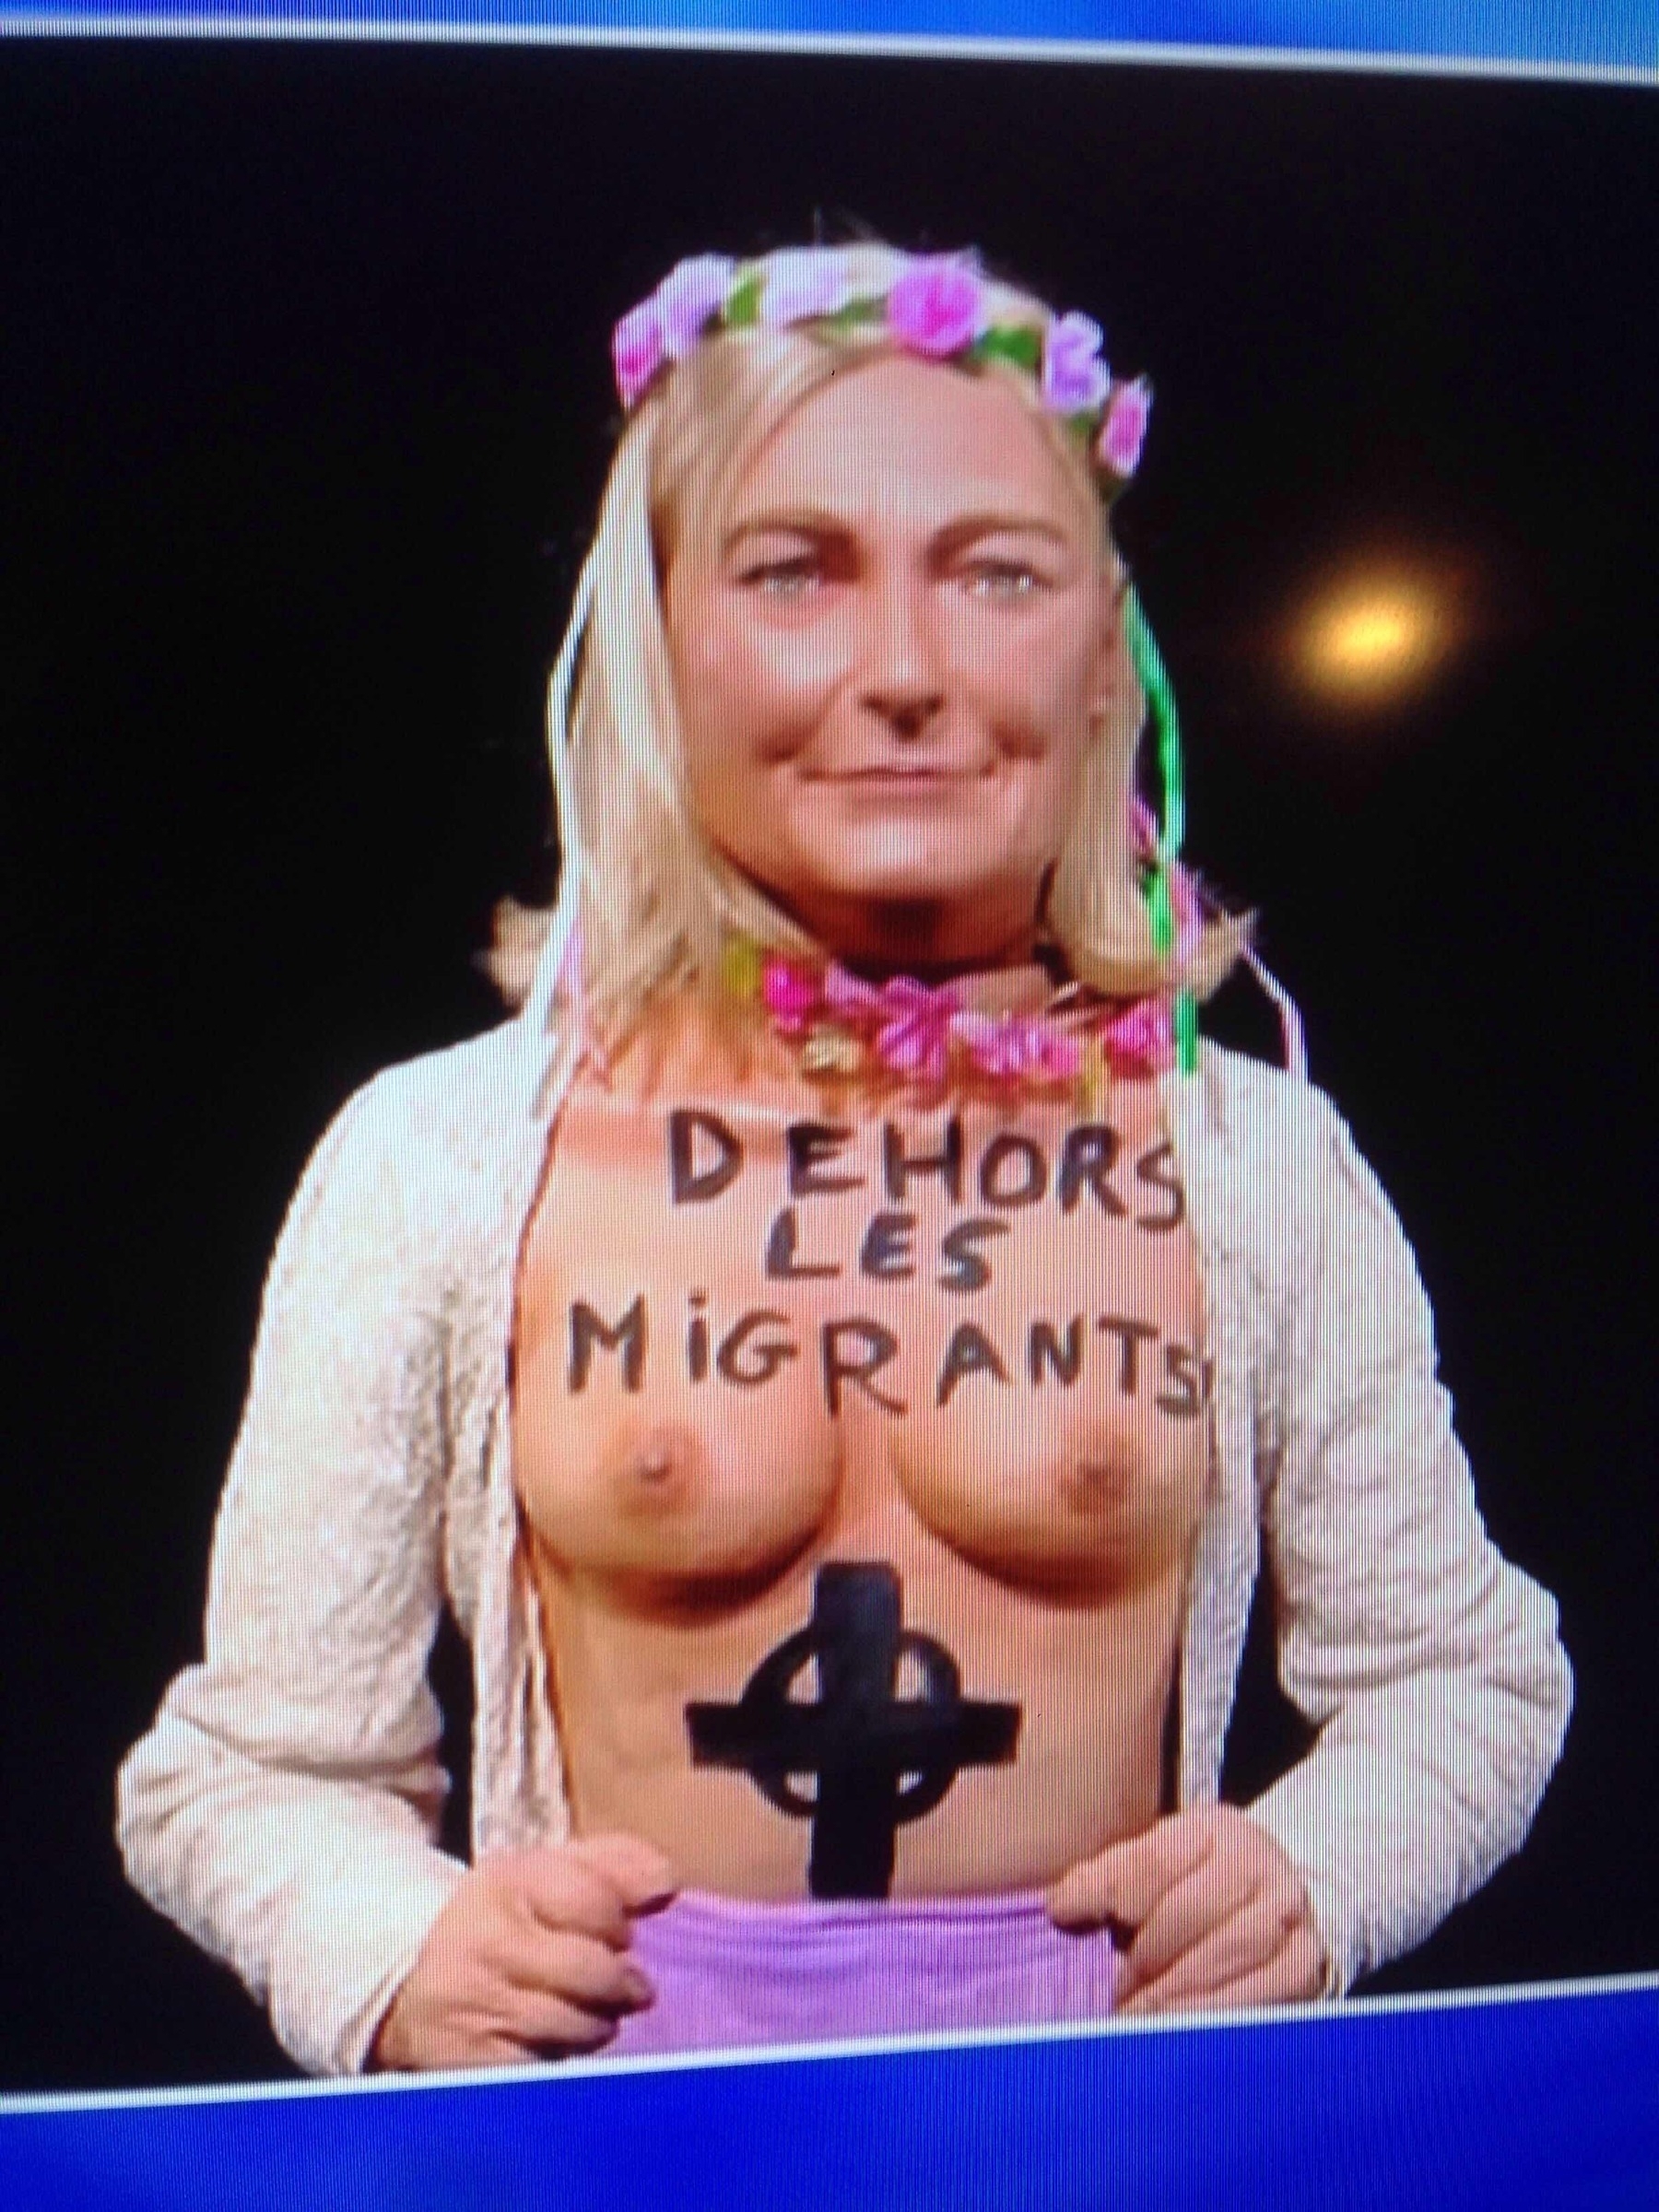 DEHORS
LES
MiGRANTS